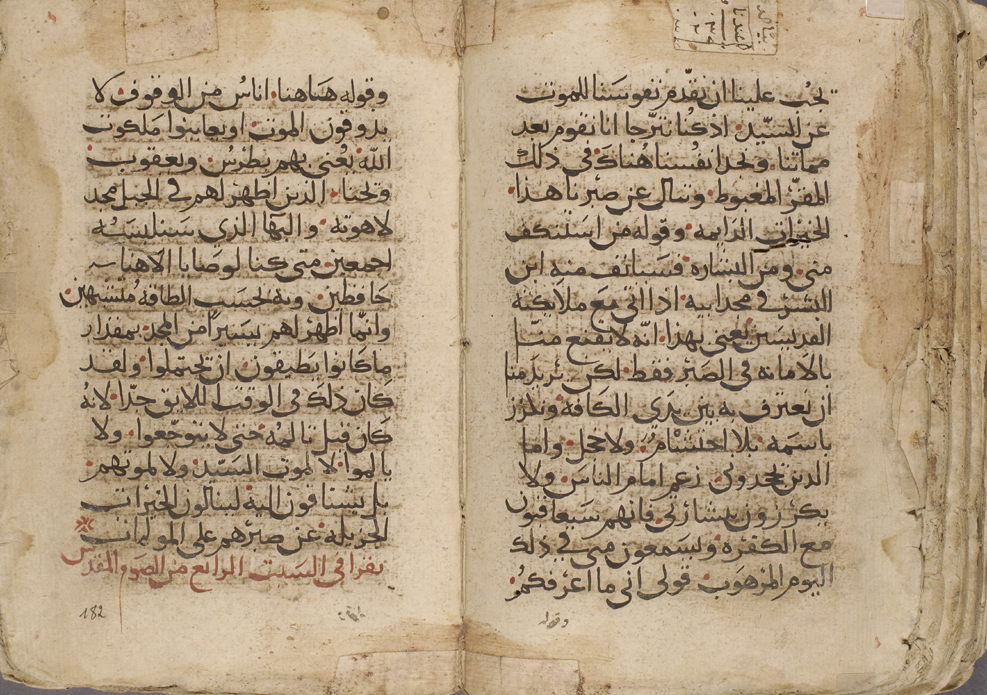 يجب علينا ان نقدم نفوسنا للموت
عن السيد اذ كنا نترجا انا نقوم بعد
مماتنا ونجد انفسنا هناك في ذلك
المقر المغبوط وننال عن صبرنا هذا
الخيرات الدايمة وقوله من استنكف
مني ومن البشاره فسيانف منه ابن
البشر في مجد ابيه اذا اتى مع ملايكته
القديسين يعني بهذا انه لا يقنع منا
بالامانه في الضمير فقط لكن يريد منا
ان نعترف به بين يدي الكافه ونكرز
باسمه بلا احتشام ولا خجل واما
الذين يجحدوني زعم امام الناس ولا
يكرزون ببشارتي فانهم سيعاقبون
مع الكفره ويسمعون مني في ذلك
اليوم المرهوب قولي اني ما اعرفكم
وقوله
وقوله هاهنا اناس من الوقوف لا
يذوقون الموت او يعاينوا ملكوت
الله يعني بهم بطرس ويعقوب
ويحنا الذين اظهر لهم في الجبل مجد
لاهوته والبها الذي سنلبسه
اجمعين متى كنا لوصايا الاهنا
حافظين وبه بحسب الطاقه متشبهين
وانما اظهر لهم يسيرا من المجد بمقدار
ما كانوا يطيقون ان يحتملوا ولقد
كان ذلك في الوقت اللايق جدا لانه
كان قبل تالمه حتى لا يتوجعوا ولا
يالموا لا لموت السيد ولا لموتهم
بل يشتاقون اليه لينالون الخيرات
الجزيله عن صبرهم على المولمات
يقرا في السبت الرابع من الصوم المقدس
182